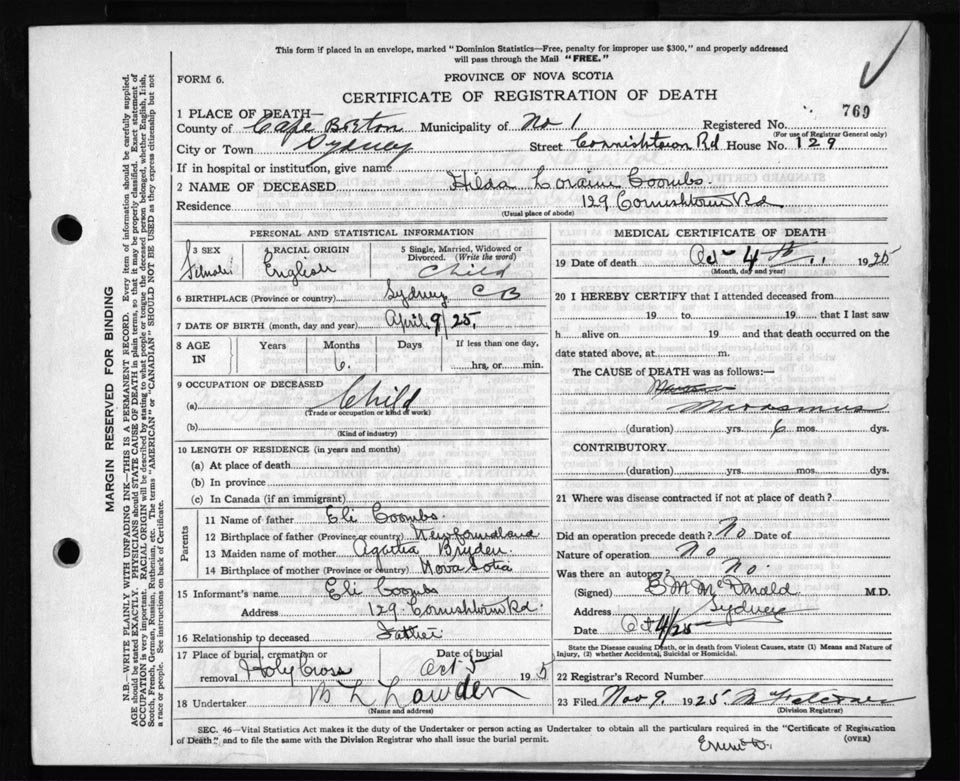 This form if placed in an envelope, marked "Dominion Statistics—Free, penalty for improper use $300," and properly addressed
will pass through the Mail "FREE."
FORM 6.
PROVINCE OF NOVA SCOTIA
CERTIFICATE OF REGISTRATION OF DEATH
769
1 PLACE OF DEATH—
County of Cape Breton Municipality of No 1 Registered No.
(For use of Registrar General only)
City or Town Sydney Street Cornishtown Rd House No. 129
If in hospital or institution, give name
2 NAME OF DECEASED Hilda Loraine Coombs.
Residence 129 Cornishtown Rd
(Usual place of abode)
PERSONAL AND STATISTICAL INFORMATION
3 SEX
4 RACIAL ORIGIN
5 Single, Married, Widowed or
Divorced. (Write the word)
Female English Child
6 BIRTHPLACE (Province or country) Sydney C B
7 DATE OF BIRTH (month, day and year) April 9/25.
8 AGE IN
Years Months Days If less than one day,
6. hrs, or min.
9 OCCUPATION OF DECEASED
(a) Child
(Trade or occupation or kind of work)
(b)
(Kind of industry)
10 LENGTH OF RESIDENCE (in years and months)
(a) At place of death
(b) In province
(c) In Canada (if an immigrant)
Parents
11 Name of father Eli Coombs
12 Birthplace of father (Province or country) Newfoundland
13 Maiden name of mother Agatha Bryden.
14 Birthplace of mother (Province or country) Nova Sotia
15 Informant's name Eli Coombs
Address 129 Cornishtown Rd.
16 Relationship to deceased Father
17 Place of burial, cremation or Date of burial
removal Holy Cross Oct 5 1925
18 Undertaker Lawden
(Name and address)
MEDICAL CERTIFICATE OF DEATH
19 Date of death Oct 4th 1925
(Month, day and year)
20 I HEREBY CERTIFY that I attended deceased from
19 to 19 that I last saw
h alive on 19 and that death occurred on the
date stated above, at m.
The CAUSE of DEATH was as follows:—
Marasmus
(duration) yrs. 6 mos. dys.
CONTRIBUTORY.
(duration) yrs. mos. dys.
21 Where was disease contracted if not at place of death?
Did an operation precede death? No Date of
Nature of operation No
Was there an autopsy? No.
(Signed) E M McDonald M.D.
Address Sydney
Date Oct 4/25
State the Disease causing Death, or in death from Violent Causes, state (1) Means and Nature of
Injury, (2) whether Accidental, Suicidal or Homicidal.
22 Registrar's Record Number
23 Filed Nov 9, 1925.
(Division Registrar)
SEC. 46—Vital Statistics Act makes it the duty of the Undertaker or person acting as Undertaker to obtain all the particulars required in the "Certificate of Registration
of Death" and to file the same with the Division Registrar who shall issue the burial permit.
(OVER)
MARGIN RESERVED FOR BINDING
N.B.—WRITE PLAINLY WITH UNFADING INK—THIS IS A PERMANENT RECORD. Every item of information should be carefully supplied.
AGE should be stated EXACTLY. PHYSICIANS should STATE CAUSE OF DEATH in plain terms, so that it may be properly classified. Exact statement of
OCCUPATION is very important. RACIAL ORIGIN will be described by stating to what people or tongue the deceased person belonged, whether English, Irish,
Scotch, French, German, Russian, Ruthenian, etc. The terms "AMERICAN" or "CANADIAN" SHOULD NOT BE USED as they express citizenship but not
a race or people. See instructions on back of Certificate.